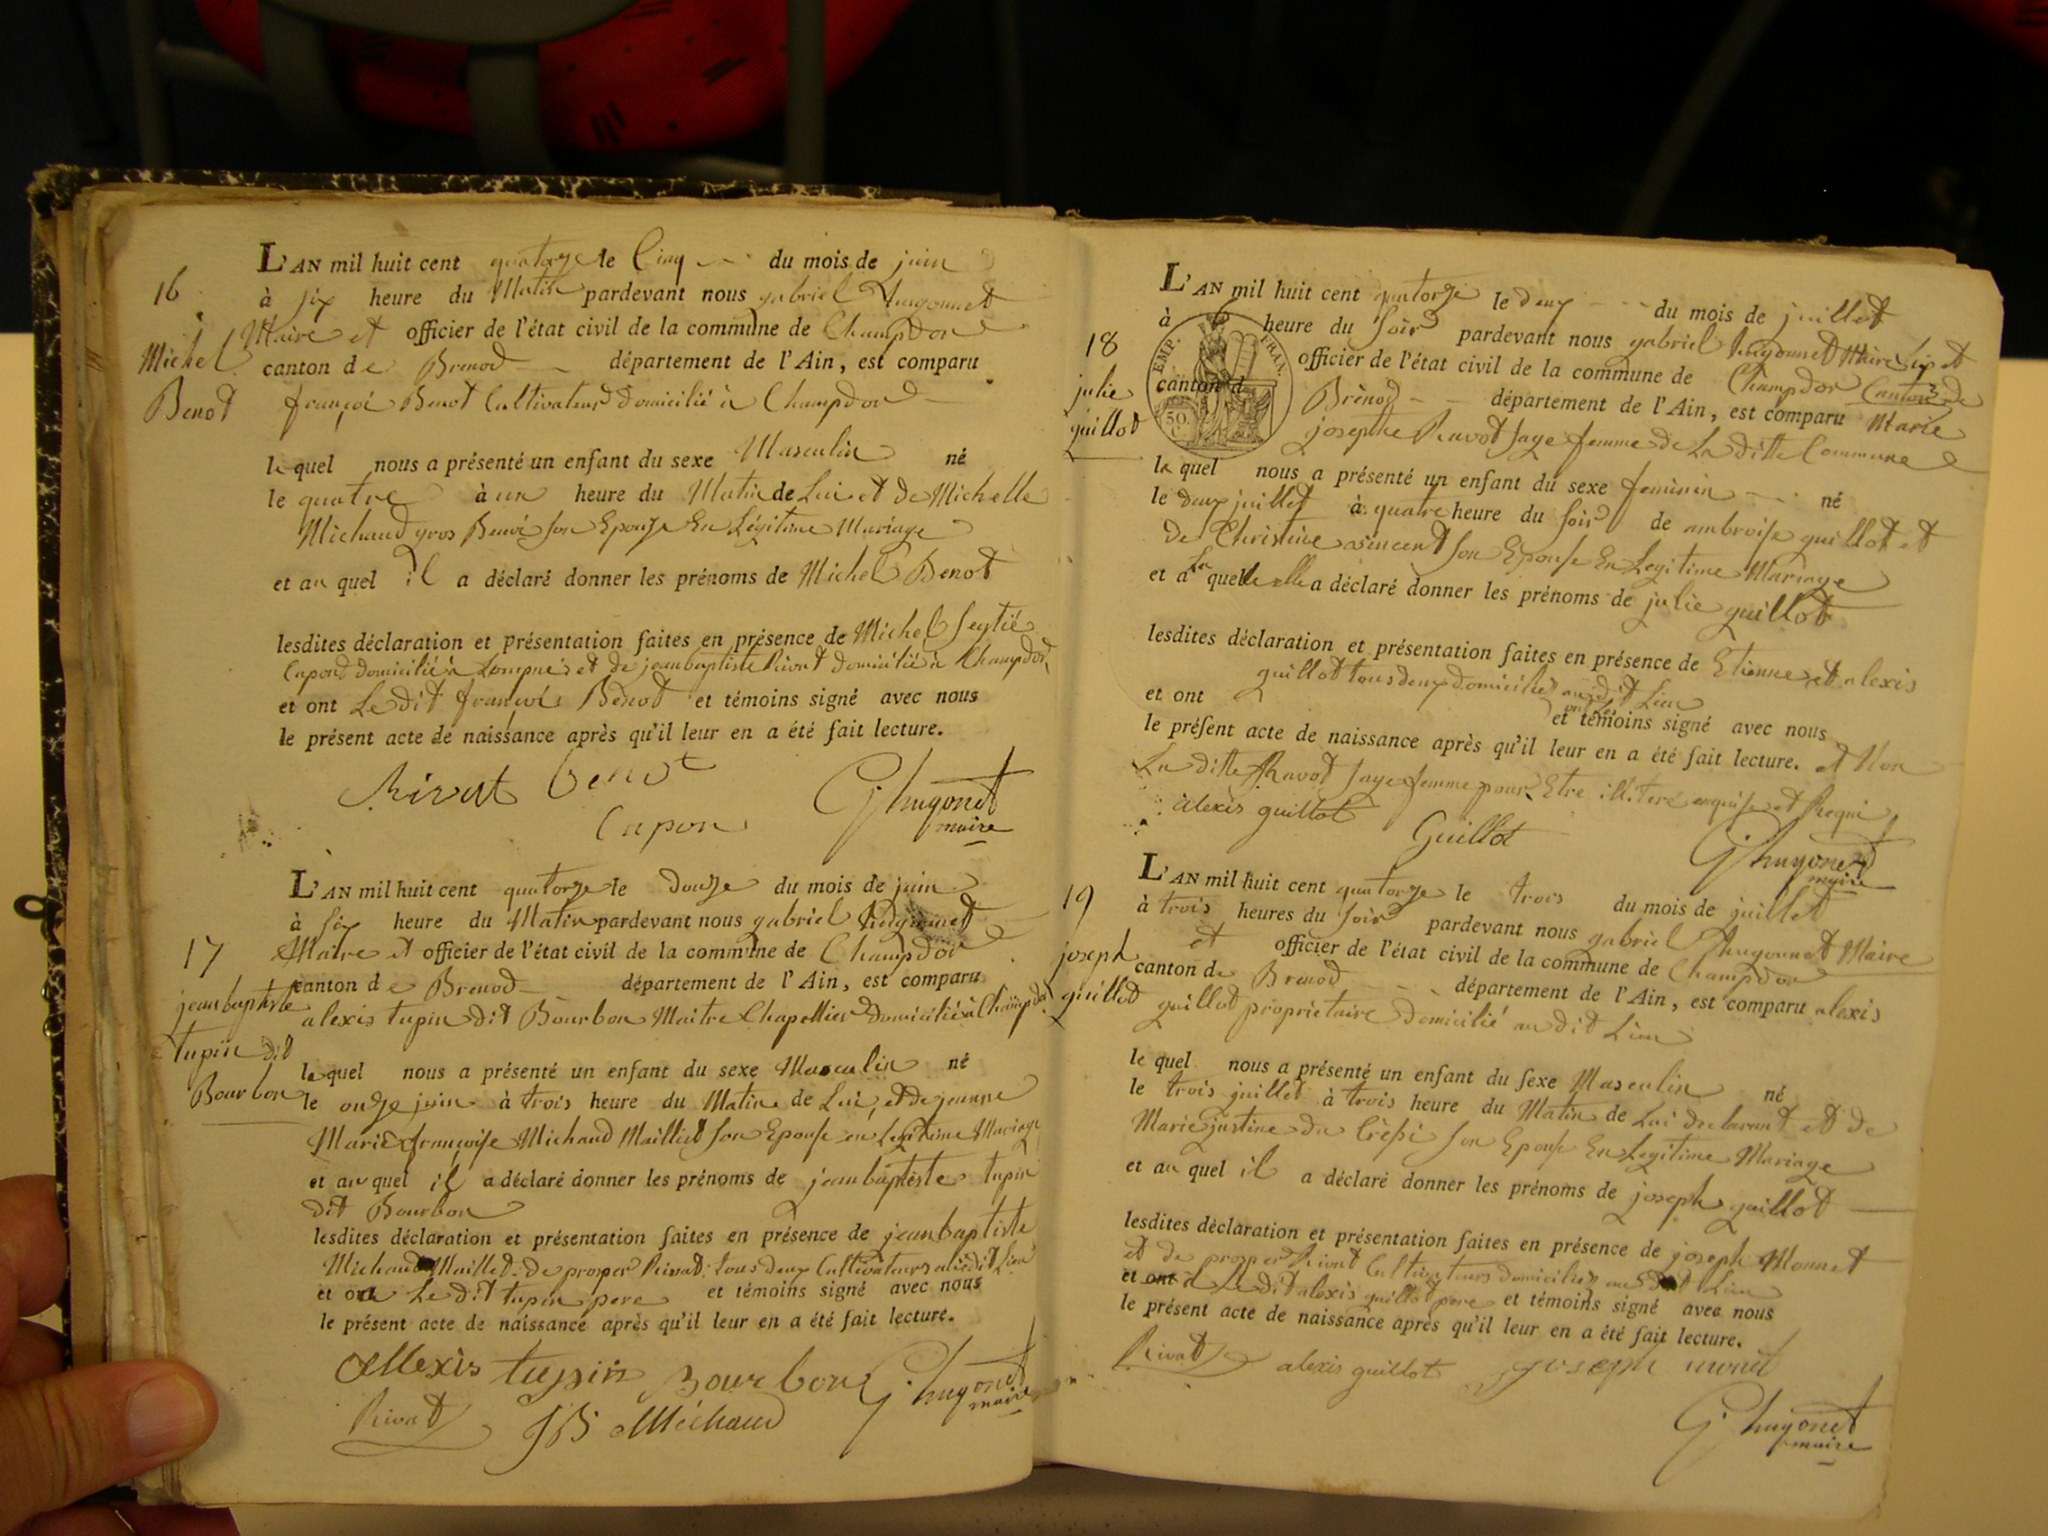 16
Michel
Benot
L'AN mil huit cent quatorze le Cinq du mois de juin
à six heure du Matin pardevant nous gabriel hugonnet
Maire et officier de l'état civil de la commune de Champdor
canton de Brenod département de l'Ain, est comparu
françois Benot Cultivateur domicilié à Champdor
le quel nous a présenté un enfant du sexe Masculin né
le quatre à un heure du Matin de Lui et de Michelle
Michaud gros Benoi son Epouse En Légitime Mariage
et au quel il a déclaré donner les prénoms de Michel Benot
lesdites déclaration et présentation faites en présence de Michel
Capon domicilié à Lompnés et de jean baptiste Rivat domicilié à Champdor
et ont Le dit françois Benot et témoins signé avec nous
le présent acte de naissance après qu'il leur en a été fait lecture.
Rivat Benot
Capon
G. hugonet
maire
17
jean baptiste
tupin dit
Bourbon
L'AN mil huit cent quatorze le douze du mois de juin
à six heure du Matin pardevant nous gabriel hugonnet
Maire et officier de l'état civil de la commune de Champdor
canton de Brenod département de l'Ain, est comparu
alexis tupin dit Bourbon Maitre Chapellier domicilié à Champdor
le quel nous a présenté un enfant du sexe Masculin né
le onze juin à trois heure du Matin de Lui, et de jeanne
Marie françoise Michaud Maillet son Epouse en Legitime Mariage
et au quel il a déclaré donner les prénoms de jean baptiste tupin
dit Bourbon
lesdites déclaration et présentation faites en présence de jean baptiste
Michaud Maillet de prosper Rivat tous deux Cultivateurs audit Lieu
et ont Le dit tupin pere et témoins signé avec nous
le présent acte de naissance après qu'il leur en a été fait lecture.
Allexis tupin Bourbon G. hugonet
maire
Rivat JB Michaud
18
julie
guillot
EMP. FRAN.
50
C.
L'AN mil huit cent quatorze le deux du mois de juillet
à heure du soir pardevant nous gabriel hugonnet Maire et
officier de l'état civil de la commune de Champdor Canton de
canton d Brénod département de l'Ain, est comparu Marie
josephe Ravot sage femme de La ditte Commune
la quel nous a présenté un enfant du sexe feminin né
le deux juillet à quatre heure du soir de ambroise guillot et
de Christine vincent son Epouse En Legitime Mariage
et a La quelle elle a déclaré donner les prénoms de julie guillot
lesdites déclaration et présentation faites en présence de Etienne et alexis
guillot tous deux domiciliés audit Lieu
et ont ont les et témoins signé avec nous
le présent acte de naissance après qu'il leur en a été fait lecture. et Non
La ditte Ravot sage femme pour Etre illiteré enquise et Requi
alexis guillot Guillot
G. hugonet
maire
19
joseph
guillot
L'AN mil huit cent quatorze le trois du mois de juillet
à trois heures du soir pardevant nous gabriel hugonnet Maire
et officier de l'état civil de la commune de Champdor
canton de Brenod département de l'Ain, est comparu alexis
guillot proprietaire domicilié au dit Lieu
le quel nous a présenté un enfant du sexe Masculin né
le trois juillet à trois heure du Matin de Lui declarant et de
Marie justine du Crépi son Epouse En Legitime Mariage
et au quel il a déclaré donner les prénoms de joseph guillot
lesdites déclaration et présentation faites en présence de joseph Monnet
et de prosper Rivat Cultivateurs domiciliés audit Lieu
et ont Le dit alexis guillot pere et témoins signé avec nous
le présent acte de naissance après qu'il leur en a été fait lecture.
Rivat alexis guillot joseph monet
G. hugonet
maire